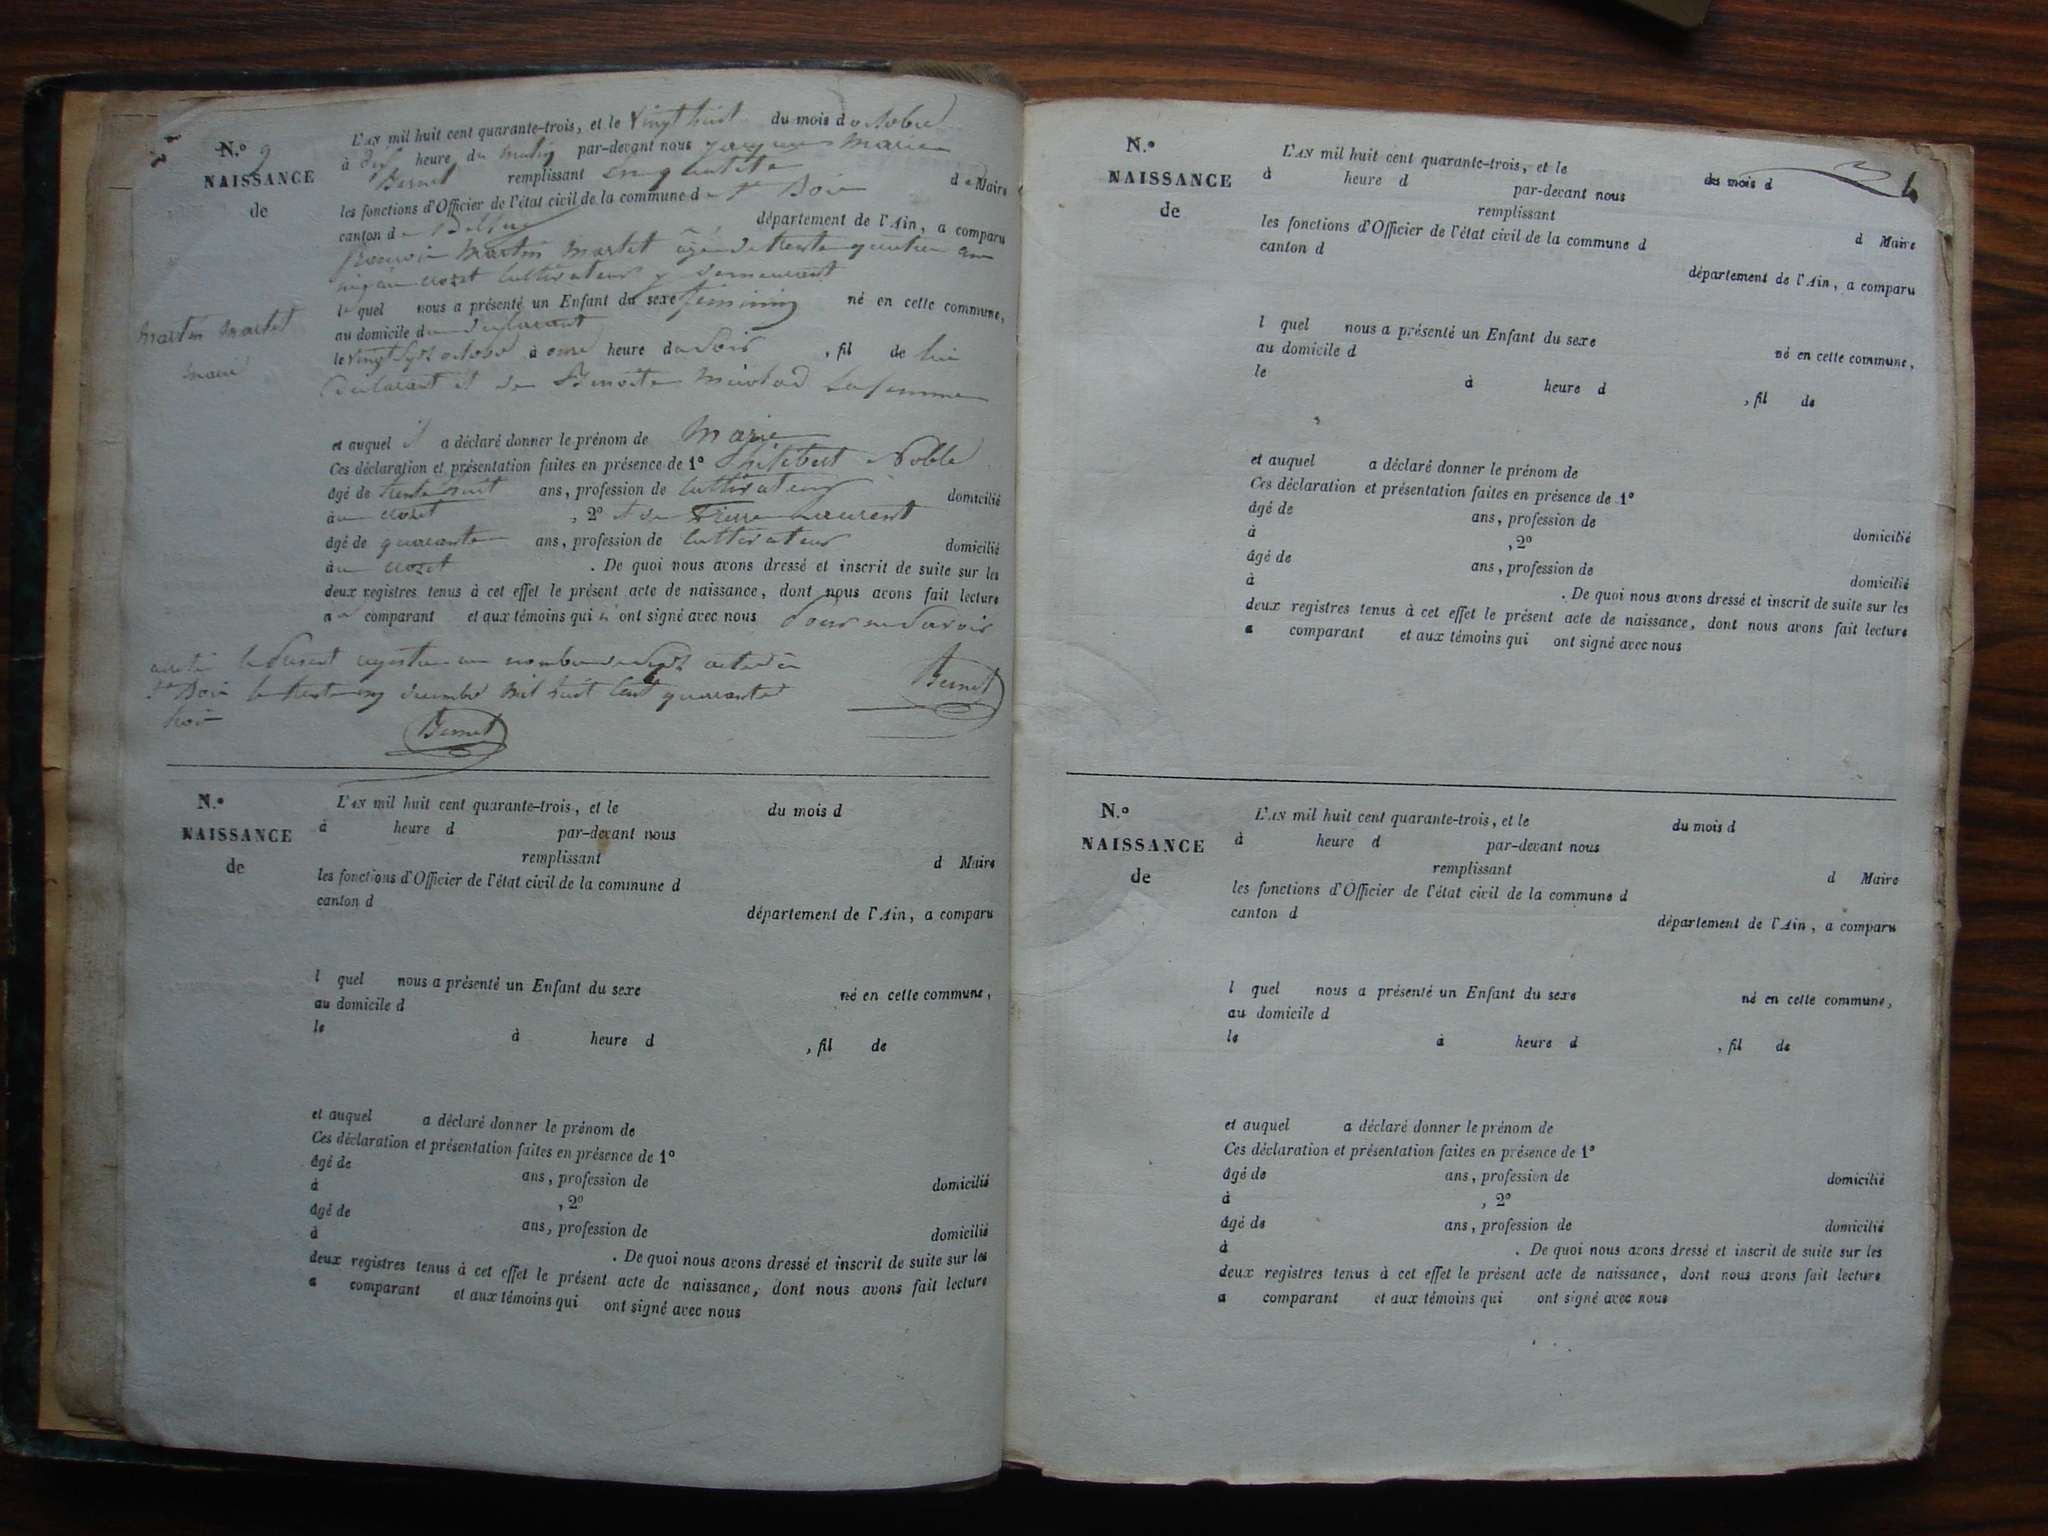 N.° 9
NAISSANCE
de
L'AN mil huit cent quarante-trois, et le vingt huit du mois d octobre
à dix heure du matin par-devant nous jacques marie
Bernet remplissant en qualité de Maire
les fonctions d'Officier de l'état civil de la commune de St Bois
canton de Belley département de l'Ain, a comparu
françois Martin Martet âgé de trente quatre ans
au crozet cultivateur y demeurant
lequel nous a présenté un Enfant du sexe féminin né en cette commune,
au domicile du déclarant
le vingt sept octobre à onze heure du soir, fil de lui
déclarant et de Benoite sa femme
Martin Martet
marie
et auquel il a déclaré donner le prénom de Marie
Ces déclaration et présentation faites en présence de 1° Philibert Noble
âgé de trente huit ans, profession de cultivateur domicilié
au crozet, 2° et de Pierre Laurent
âgé de quarante ans, profession de cultivateur domicilié
au crozet. De quoi nous avons dressé et inscrit de suite sur les
deux registres tenus à cet effet le présent acte de naissance, dont nous avons fait lecture
au comparant et aux témoins qui n'ont signé avec nous pour ne savoir
Bernet
le présent registre au nombre de actes à
St Bois le trente un décembre mil huit cent quarante
trois
Bernet
N.°
NAISSANCE
de
L'AN mil huit cent quarante-trois, et le du mois d
à heure d par-devant nous
remplissant d Maire
les fonctions d'Officier de l'état civil de la commune d
canton d département de l'Ain, a comparu
l quel nous a présenté un Enfant du sexe né en cette commune,
au domicile d
le à heure d , fil de
et auquel a déclaré donner le prénom de
Ces déclaration et présentation faites en présence de 1°
âgé de ans, profession de domicilié
à , 2°
âgé de ans, profession de domicilié
à . De quoi nous avons dressé et inscrit de suite sur les
deux registres tenus à cet effet le présent acte de naissance, dont nous avons fait lecture
a comparant et aux témoins qui ont signé avec nous
N.°
NAISSANCE
de
L'AN mil huit cent quarante-trois, et le des mois d
à heure d par-devant nous
remplissant d Maire
les fonctions d'Officier de l'état civil de la commune d
canton d département de l'Ain, a comparu
l quel nous a présenté un Enfant du sexe né en cette commune,
au domicile d
le à heure d , fil de
et auquel a déclaré donner le prénom de
Ces déclaration et présentation faites en présence de 1°
âgé de ans, profession de domicilié
à , 2°
âgé de ans, profession de domicilié
à . De quoi nous avons dressé et inscrit de suite sur les
deux registres tenus à cet effet le présent acte de naissance, dont nous avons fait lecture
a comparant et aux témoins qui ont signé avec nous
N.°
NAISSANCE
de
L'AN mil huit cent quarante-trois, et le du mois d
à heure d par-devant nous
remplissant d Maire
les fonctions d'Officier de l'état civil de la commune d
canton d département de l'Ain, a comparu
l quel nous a présenté un Enfant du sexe né en cette commune,
au domicile d
le à heure d , fil de
et auquel a déclaré donner le prénom de
Ces déclaration et présentation faites en présence de 1°
âgé de ans, profession de domicilié
à , 2°
âgé de ans, profession de domicilié
à . De quoi nous avons dressé et inscrit de suite sur les
deux registres tenus à cet effet le présent acte de naissance, dont nous avons fait lecture
a comparant et aux témoins qui ont signé avec nous